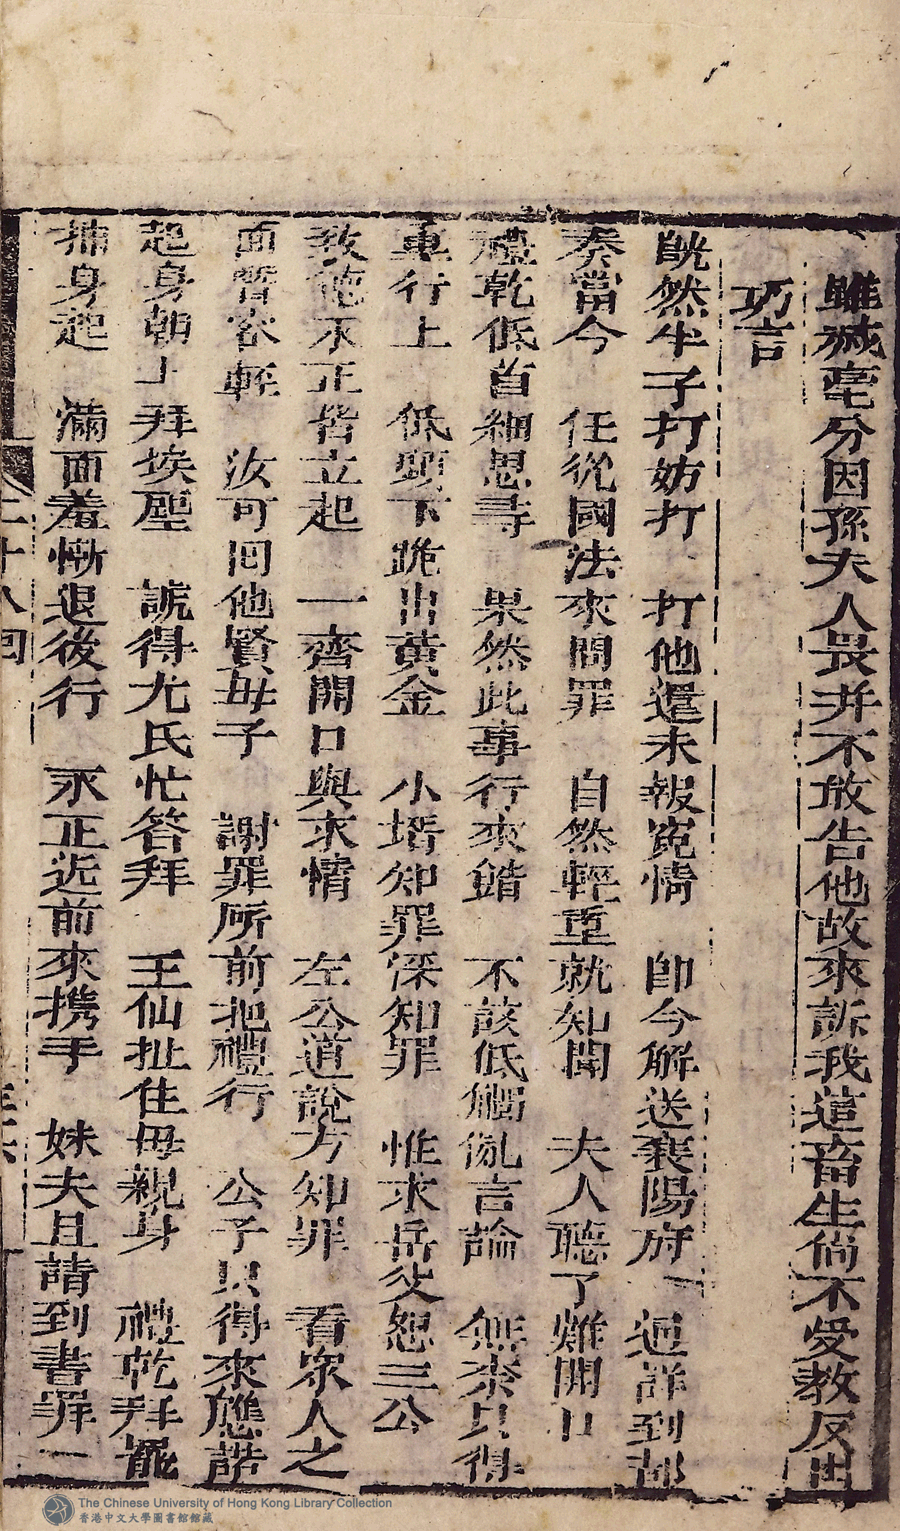 雖減產分因孫夫人畏并不敢告他故來訴我這畜生尚不受教反出
巧言
既然半子打妨打 打他還未報冤情 即今解送襄陽府 迴詳到部
奏當今 任從國法來問罪 自然輕重就知聞 夫人聽了難開口
禮乾低首細思尋 果然此事行來錯 不該低觸亂言論 無奈只得
重行上 低頭下跪出黃金 小壻知罪深知罪 惟求岳父恕三公
教他永正皆立起 一齊開口與求情 左公道說方知罪 看眾人之
面暫容輕 汝可同他賢母子 謝罪所前把禮行 公子只得來應諾
起身朝上拜埃塵 諕得尤氏忙答拜 王仙扯住母親身 禮乾拜罷
抽身起 滿面羞慚退後行 永正近前來携手 妹夫且請到書齋一
二十八回
The Chinese University of Hong Kong Library Collection
香港中文大學圖書館館藏